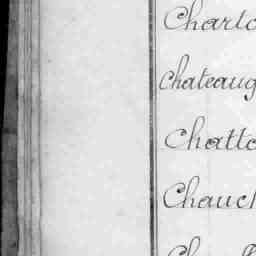 Charlo
Chateaug
Chatto
Chauch